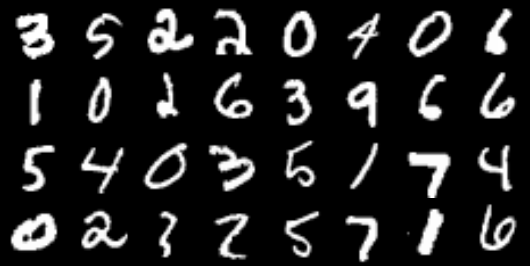 3 5 2 2 0 4 0 6
1 0 2 6 3 9 6 6
5 4 0 3 5 1 7 4
0 2 3 2 5 7 1 6